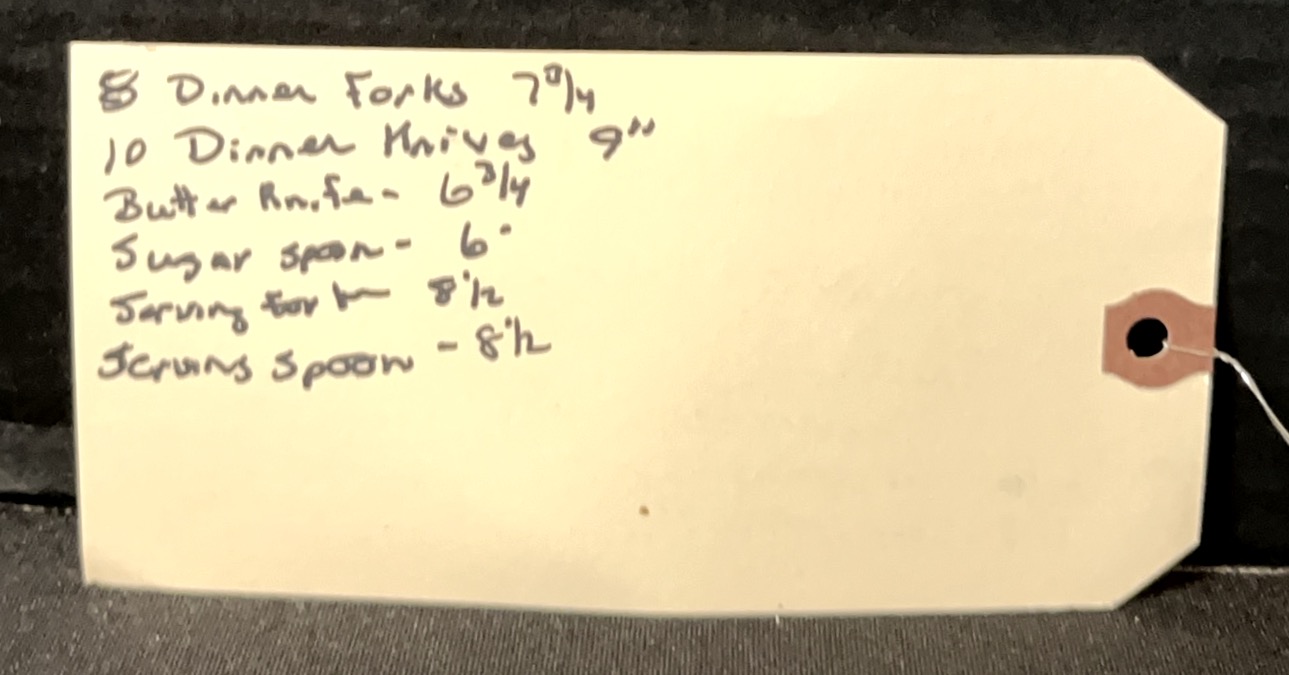 8 Dinner Forks 7 3/4
10 Dinner Knives 9"
Butter Knife - 6 3/4
Sugar spoon - 6"
Serving fork 8 1/2
Serving Spoon - 8 1/2